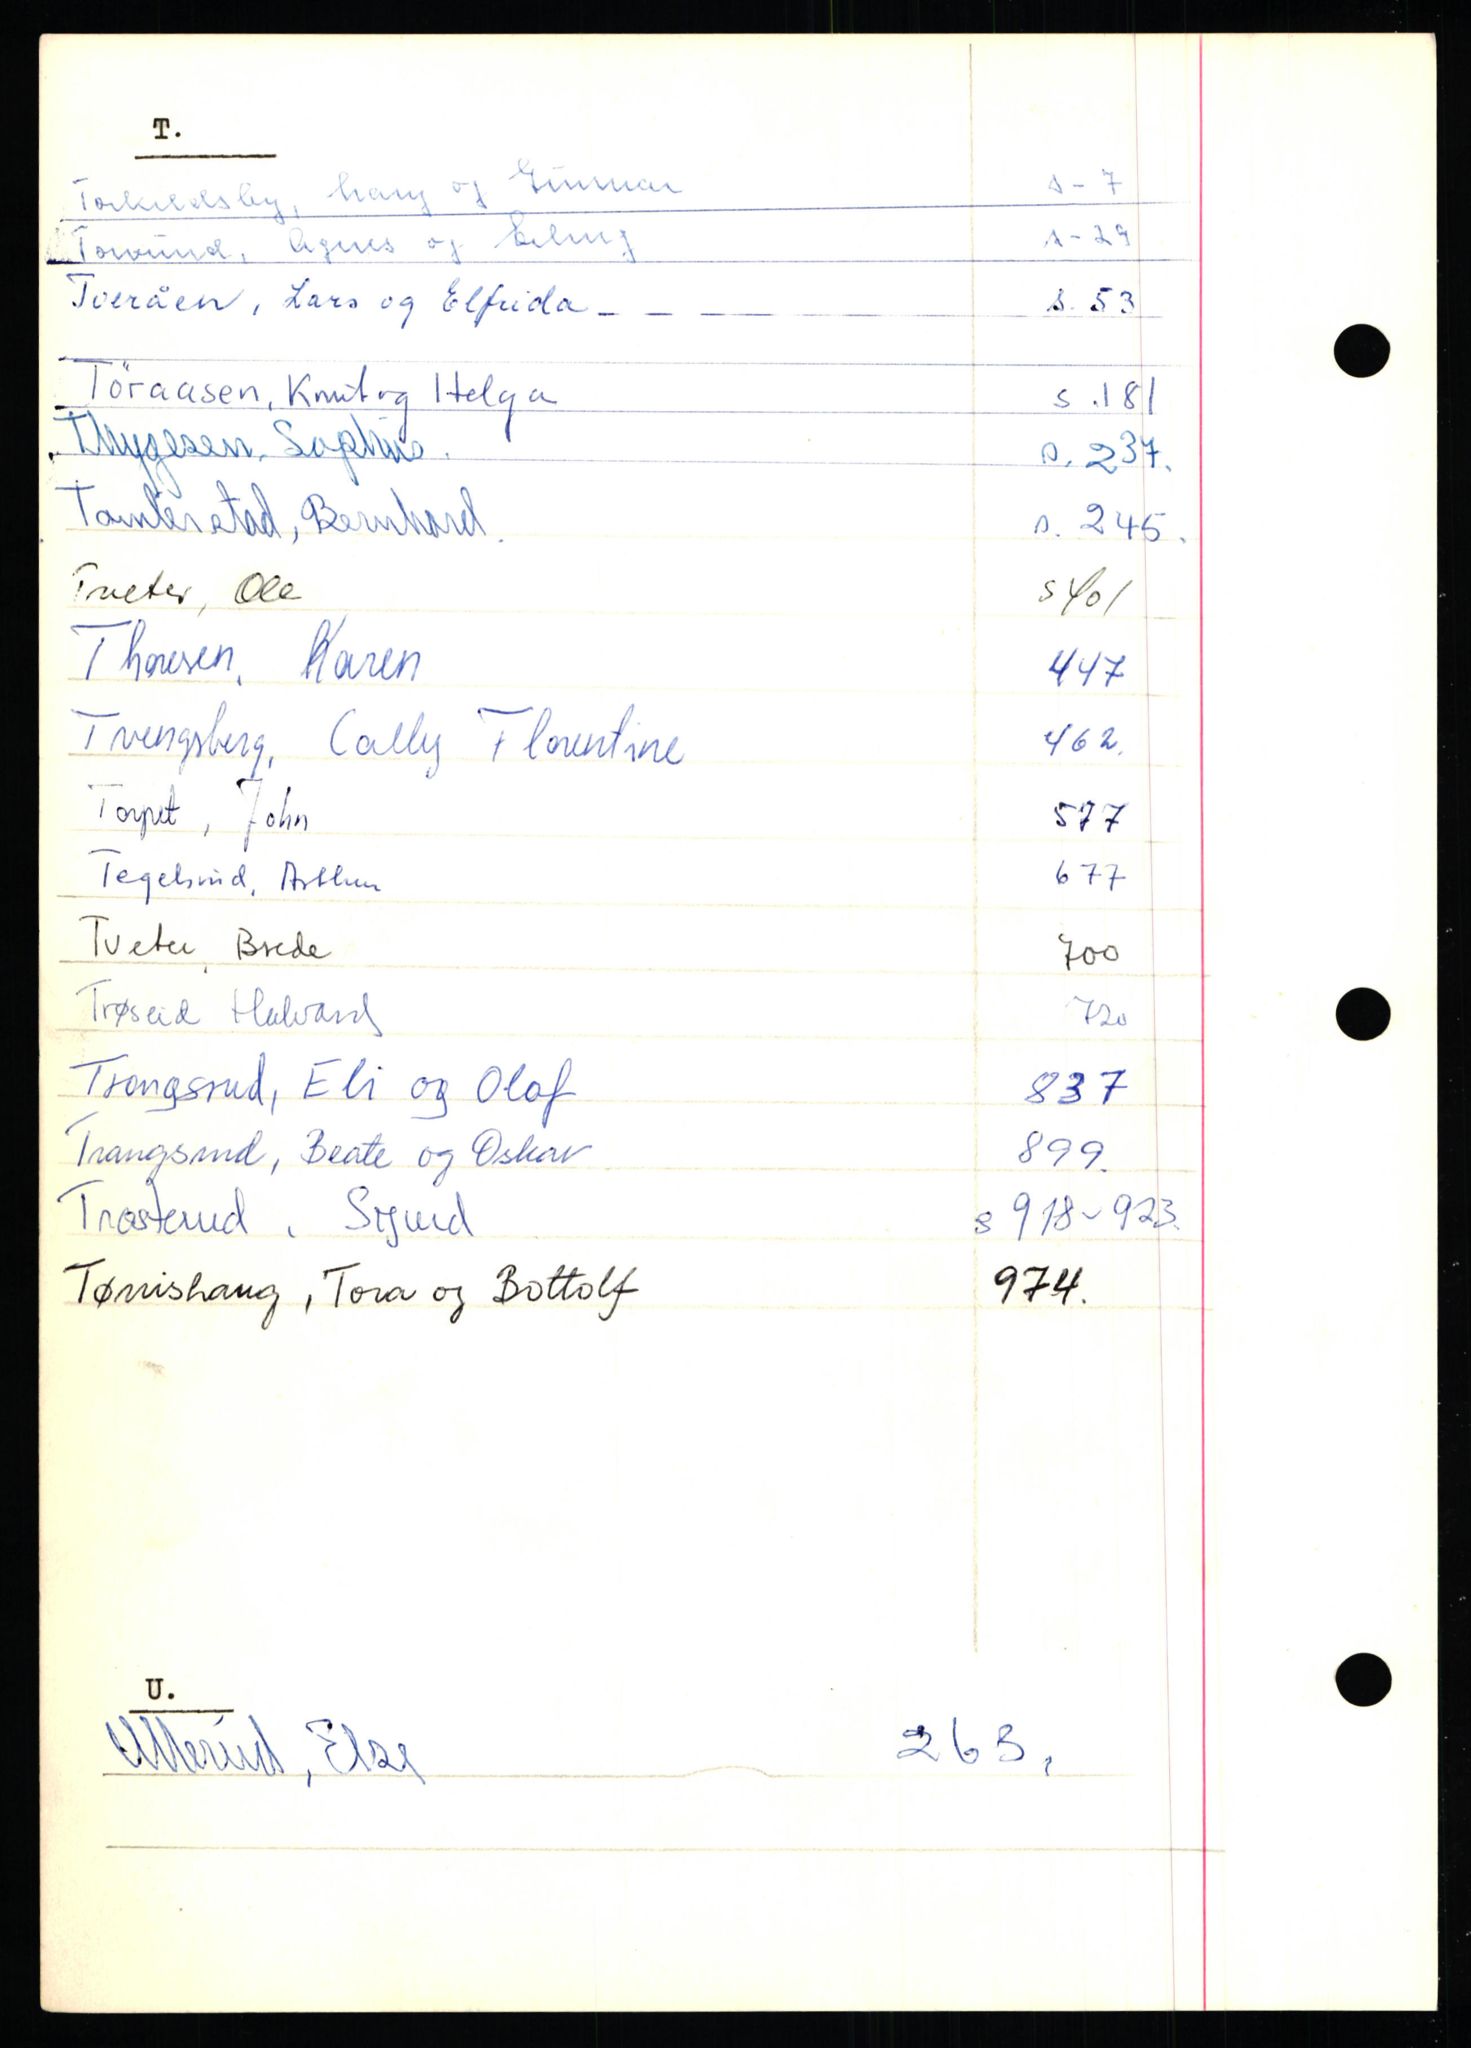 T.
Torkildsby, Mary og Gunnar s-7
Torvund, Agnes og Erling s-29
Tveråen, Lars og Elfrida _ _ _ s. 53
Töraasen, Knut og Helga s. 181
Thygesen, Sophus. s. 237.
Tomterstad, Bernhard. s. 245.
Tveter, Ole s 401
Thoresen, Karen 447
Tvengsberg, Cally Florentine 462.
Torpet, John 577
Tegelsrud, Arthur 677
Tveter, Brede 700
Trøseid Halvard 720
Trongsrud, Eli og Olaf 837
Trangsrud, Beate og Oskar 899.
Trosterud, Sigurd s 918-923.
Tørrishaug, Tora og Bottolf 974.
U.
Ullerud, Else 263.